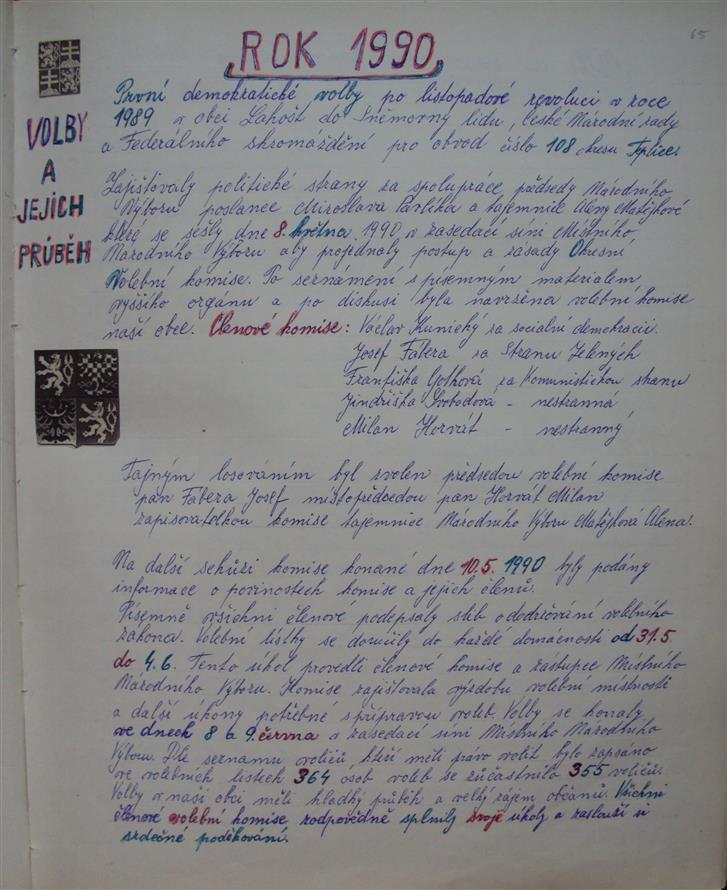 65
ROK 1990
VOLBY
A
JEJICH
PRŮBĚH
První demokratické volby po listopadové revoluci v roce
1989 v obci Lahošť do Sněmovny lidu, České Národní rady
a Federálního shromáždění pro obvod číslo 108 okresu Teplice.
Zajišťovaly politické strany za spolupráce předsedy Národního
Výboru poslance Miroslava Pavlíka a tajemnice Aleny Matějkové
které se sešly dne 8. května 1990 v zasedací síni Místního
Národního Výboru aby projednaly postup a zásady Okresní
Volební komise. Po seznámení s písemným materialem
vyššího organu a po diskusi byla navržena volební komise
naší obce. Členové komise: Václav Kunický za socialní demokracii.
Josef Fabera za Stranu Zelených
Františka Gothová za Komunistickou stranu
Jindřiška Svobodová - nestranná
Milan Horvát - nestranný
Tajným losováním byl zvolen předsedou volební komise
pan Fabera Josef místopředsedou pan Horvát Milan
zapisovatelkou komise tajemnice Národního Výboru Matějková Alena.
Na další schůzi komise konané dne 10.5. 1990 byly podány
informace o povinostech komise a jejích členů.
Písemně všichni členové podepsaly slib o dodržování volebního
zákona. Volební lístky se doručily do každé domácnosti od 31.5
do 4.6. Tento úkol provedli členové komise a zástupce Místního
Národního Výboru. Komise zajišťovala výzdobu volební místnosti
a další úkony potřebné s přípravou voleb. Volby se konaly
ve dnech 8 a 9. června v zasedací síni Místního Národního
Výboru. Dle seznamu voličů, kteří měli právo volit bylo zapsáno
ve volebních listech 364 osob voleb se zúčastnilo 355 voličů.
Volby v naší obci měli hladký průběh a velký zájem občanů. Všichni
členové volební komise zodpovědně splnily svoje úkoly a zaslouží si
srdečné poděkování.